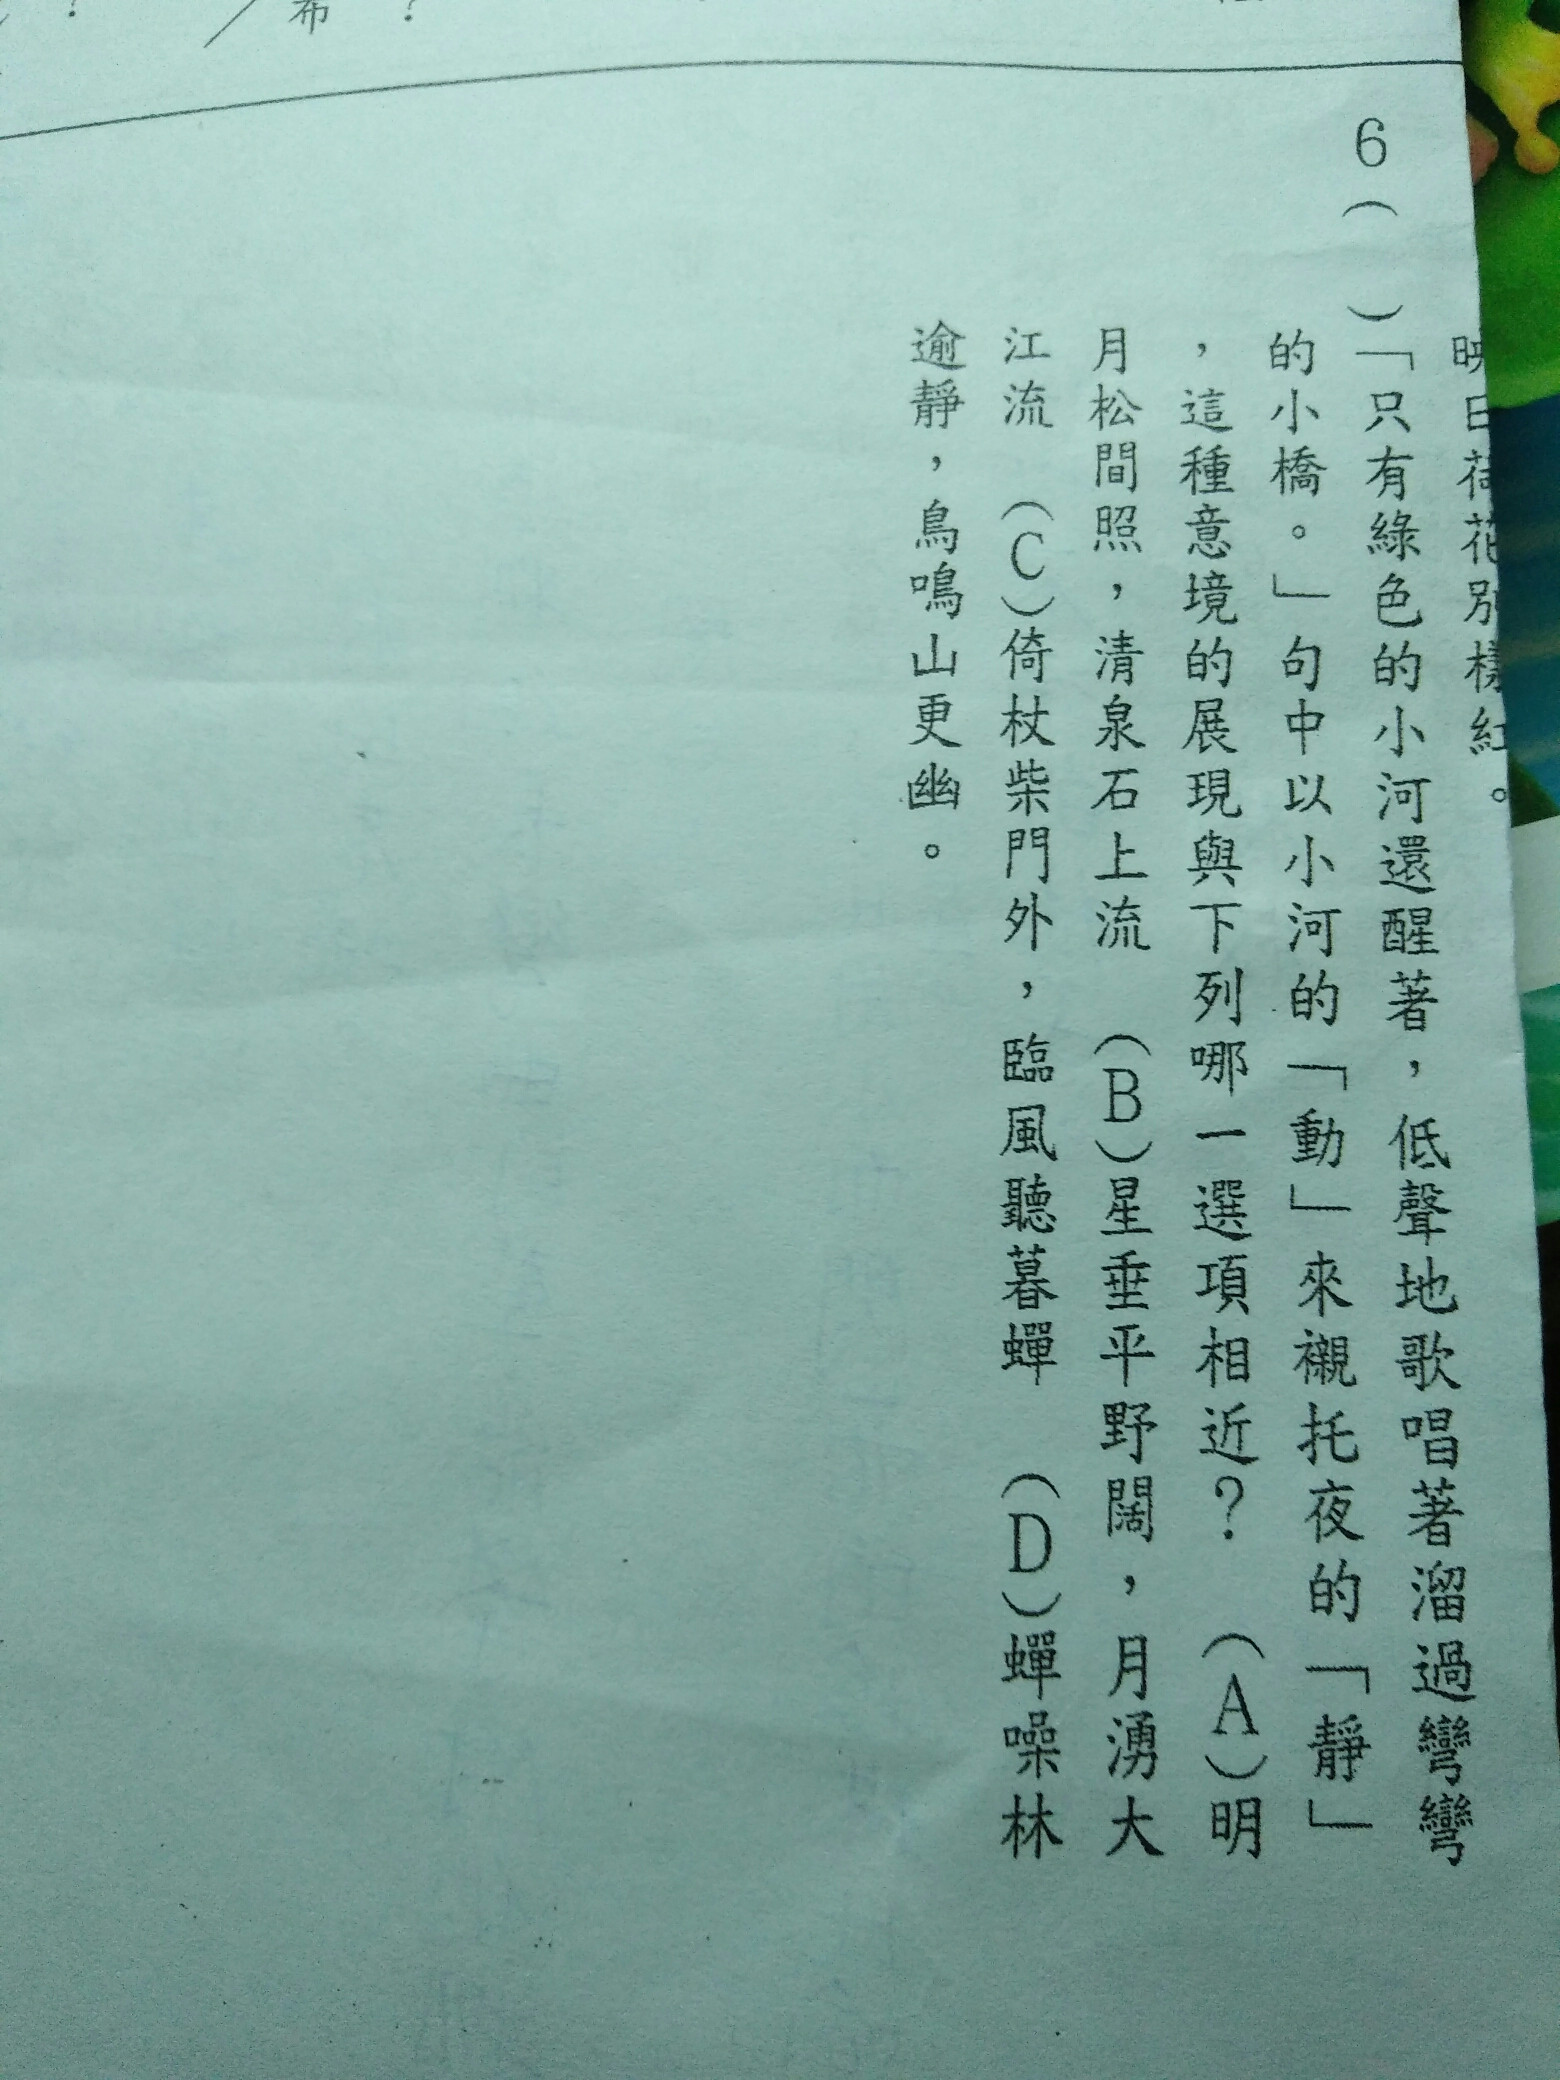 布？
？
映日荷花別樣紅。
6（　）「只有綠色的小河還醒著，低聲地歌唱著溜過彎彎
的小橋。」句中以小河的「動」來襯托夜的「靜」
，這種意境的展現與下列哪一選項相近？　(A)明
月松間照，清泉石上流　(B)星垂平野闊，月湧大
江流　(C)倚杖柴門外，臨風聽暮蟬　(D)蟬噪林
逾靜，鳥鳴山更幽。